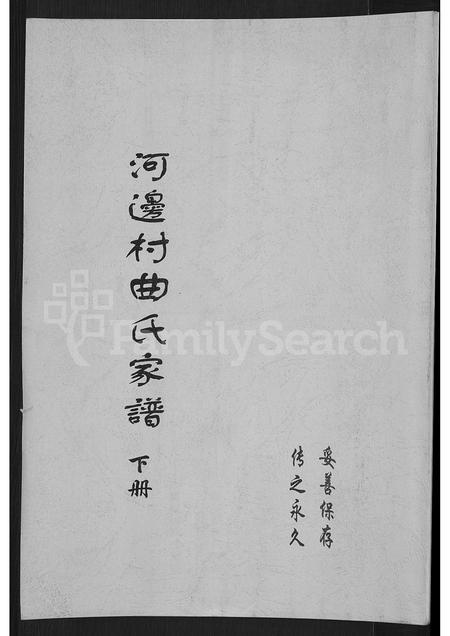 妥善保存
传之永久
河邊村曲氏家譜 下册
FamilySearch